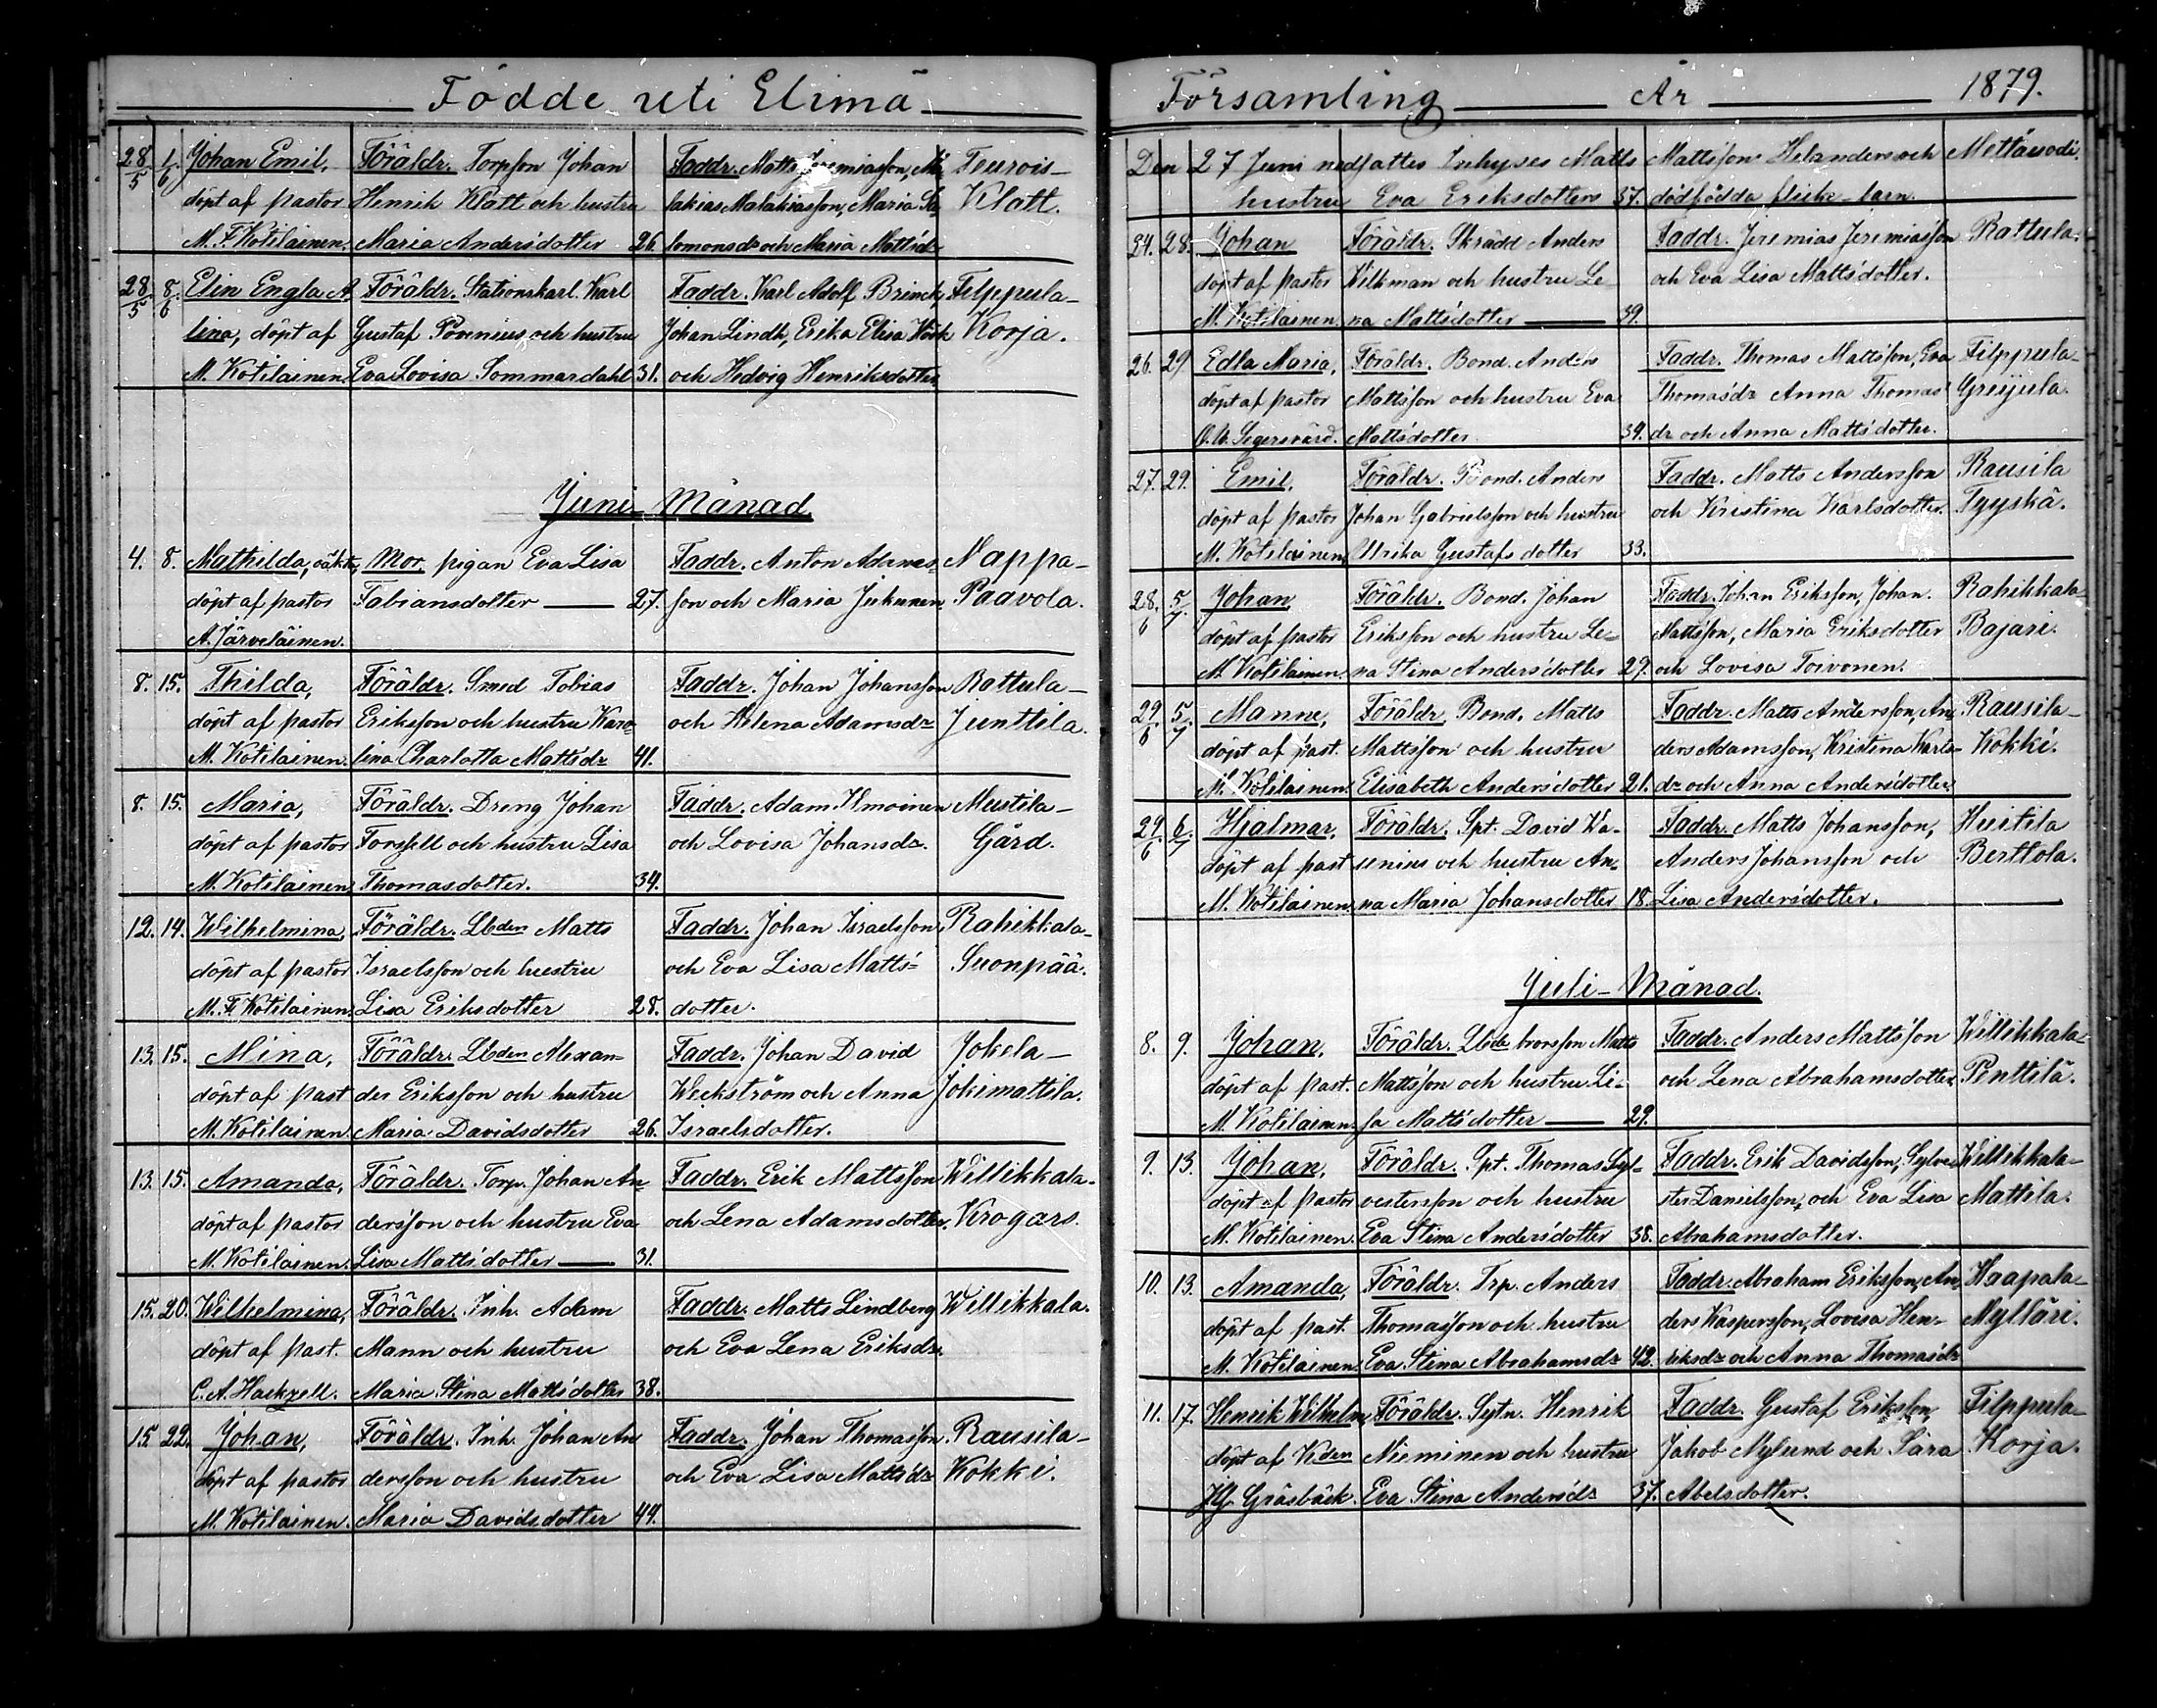 Födde uti Elimä
28/5 1/6 Johan Emil, Föräldr. Torpson Johan Faddr. Matts Jeremiasson, Ma- Teurois-
döpt af pastor Henrik Klatt och hustru lakias Malakiasson, Maria Sa- Klatt.
M. F. Kotilainen. Maria Andersdotter 26. lomonsdr och Maria Mattsdr
28/5 8/6 Elin Engla A- Föräldr. Stationskarl Karl Faddr. Karl Adolf Brinck, Filppula-
lina, döpt af Gustaf Porenius och hustru Johan Lindh, Erika Elisa Korja.
M. Kotilainen. Eva Lovisa Sommardahl 31. och Hedvig Henriksdotter
Juni Månad.
4. 8. Mathilda, oäkta, Mor, pigan Eva Lisa Faddr. Anton Adams- Nappa-
döpt af pastor Fabiansdotter 27. son och Maria Jukunen. Paavola.
A. Järveläinen.
8. 15. Thilda, Föräldr. Smed Tobias Faddr. Johan Johansson Rattula-
döpt af pastor Eriksson och hustru Karo- och Helena Adamsdr Junttila.
M. Kotilainen. lina Charlotta Mattsdr 41.
8. 15. Maria, Föräldr. Dreng Johan Faddr. Adam Ilmoinen Mustila-
döpt af pastor Forssell och hustru Lisa och Lovisa Johansdr. Gård.
M. Kotilainen. Thomasdotter. 34.
12. 14. Wilhelmina, Föräldr. Lbden Matts Faddr. Johan Israelsson Rahikkala-
döpt af pastor Israelsson och hustru och Eva Lisa Matts- Suonpää.
M. F. Kotilainen. Lisa Eriksdotter 28. dotter.
13. 15. Mina, Föräldr. Lbden Alexan- Faddr. Johan David Jokela-
döpt af past der Eriksson och hustru Weckström och Anna Jokimattila.
M. Kotilainen. Maria Davidsdotter 26. Israelsdotter.
13. 15. Amanda, Föräldr. Torp. Johan An- Faddr. Erik Mattsson Willikkala-
döpt af pastor dersson och hustru Eva och Lena Adamsdotter. Krogars.
M. Kotilainen. Lisa Mattsdotter 31.
15. 20. Wilhelmina, Föräldr. Inh. Adam Faddr. Matts Lindberg Willikkala.
döpt af past. Mann och hustru och Eva Lena Eriksdr.
C. A. Hackzell. Maria Stina Mattsdotter 38.
15. 22. Johan, Föräldr. Inh. Johan An- Faddr. Johan Thomasson. Rausila-
döpt af pastor dersson och hustru och Eva Lisa Mattsdr Kokki.
M. Kotilainen. Maria Davidsdotter 44.
Församling År 1879.
Den 27 Juni nedsattes Inhyses Matts Mattsson Helanders och Mettäsodi.
hustru Eva Eriksdotters 37. dödfödda flicke-barn.
24. 28. Johan Föräldr. Skrädd Anders Faddr. Jeremias Jeremiasson Rattula.
döpt af pastor Wilkman och hustru Le- och Eva Lisa Mattsdotter.
M. Kotilainen na Mattsdotter 39.
26. 29. Edla Maria, Föräldr. Bond. Anders Faddr. Thomas Mattsson, Eva Filppula-
döpt af pastor Mattsson och hustru Eva Thomasdr Anna Thomas-
O. U. Segersvärd. Mattsdotter. 39. dr och Anna Mattsdotter.
27. 29. Emil, Föräldr. Bond. Anders Faddr. Matts Andersson Rausila
döpt af pastor Johan Gabrielsson och hustru och Kristina Karlsdotter. Tyyskä.
M. Kotilainen Ulrika Gustafsdotter 33.
28/6 5/7 Johan Föräldr. Bond. Johan Faddr. Johan Eriksson, Johan Rahikkala-
döpt af pastor Eriksson och hustru Le- Mattsson, Maria Eriksdotter Bajari.
M. Kotilainen. na Stina Andersdotter 29. och Lovisa Toivonen.
29/6 5/7 Manne, Föräldr. Bond. Matts Faddr. Matts Andersson, An- Rausila-
döpt af past. Mattsson och hustru ders Adamsson, Kristina Karls- Kokki.
M. Kotilainen. Elisabeth Andersdotter 21. dr och Anna Andersdotter.
29/6 6/7 Hjalmar, Föräldr. Spt. David Wa- Faddr. Matts Johansson, Huitila
döpt af past unius och hustru An- Anders Johansson och Berttola.
M. Kotilainen. na Maria Johansdotter 18. Lisa Andersdotter.
Juli-Månad.
8. 9. Johan, Föräldr. Lbde brorson Matts Faddr. Anders Mattsson Willikkala-
döpt af past. Mattsson och hustru Li- och Lena Abrahamsdotter. Penttilä.
M. Kotilainen. sa Mattsdotter 29.
9. 13. Johan, Föräldr. Spt. Thomas Syl- Faddr. Erik Davidsson, Sylve- Willikkala-
döpt af pastor vestersson och hustru ster Danielsson, och Eva Lisa Mattila.
M. Kotilainen. Eva Stina Andersdotter 38. Abrahamsdotter.
10. 13. Amanda, Föräldr. Trp. Anders Faddr. Abraham Eriksson, An- Haapala-
döpt af past. Thomasson och hustru ders Kaspersson, Lovisa Hen- Mylläri.
M. Kotilainen. Eva Stina Abrahamsdr 42. riksdr och Anna Thomasdr
11. 17. Henrik Wilhelm, Föräldr. Sytn. Henrik Faddr. Gustaf Eriksson, Filppula-
döpt af Kden Nieminen och hustru Jakob Nylund och Sara Korja.
Gräsbäck. Eva Stina Andersdr 37. Abelsdotter.